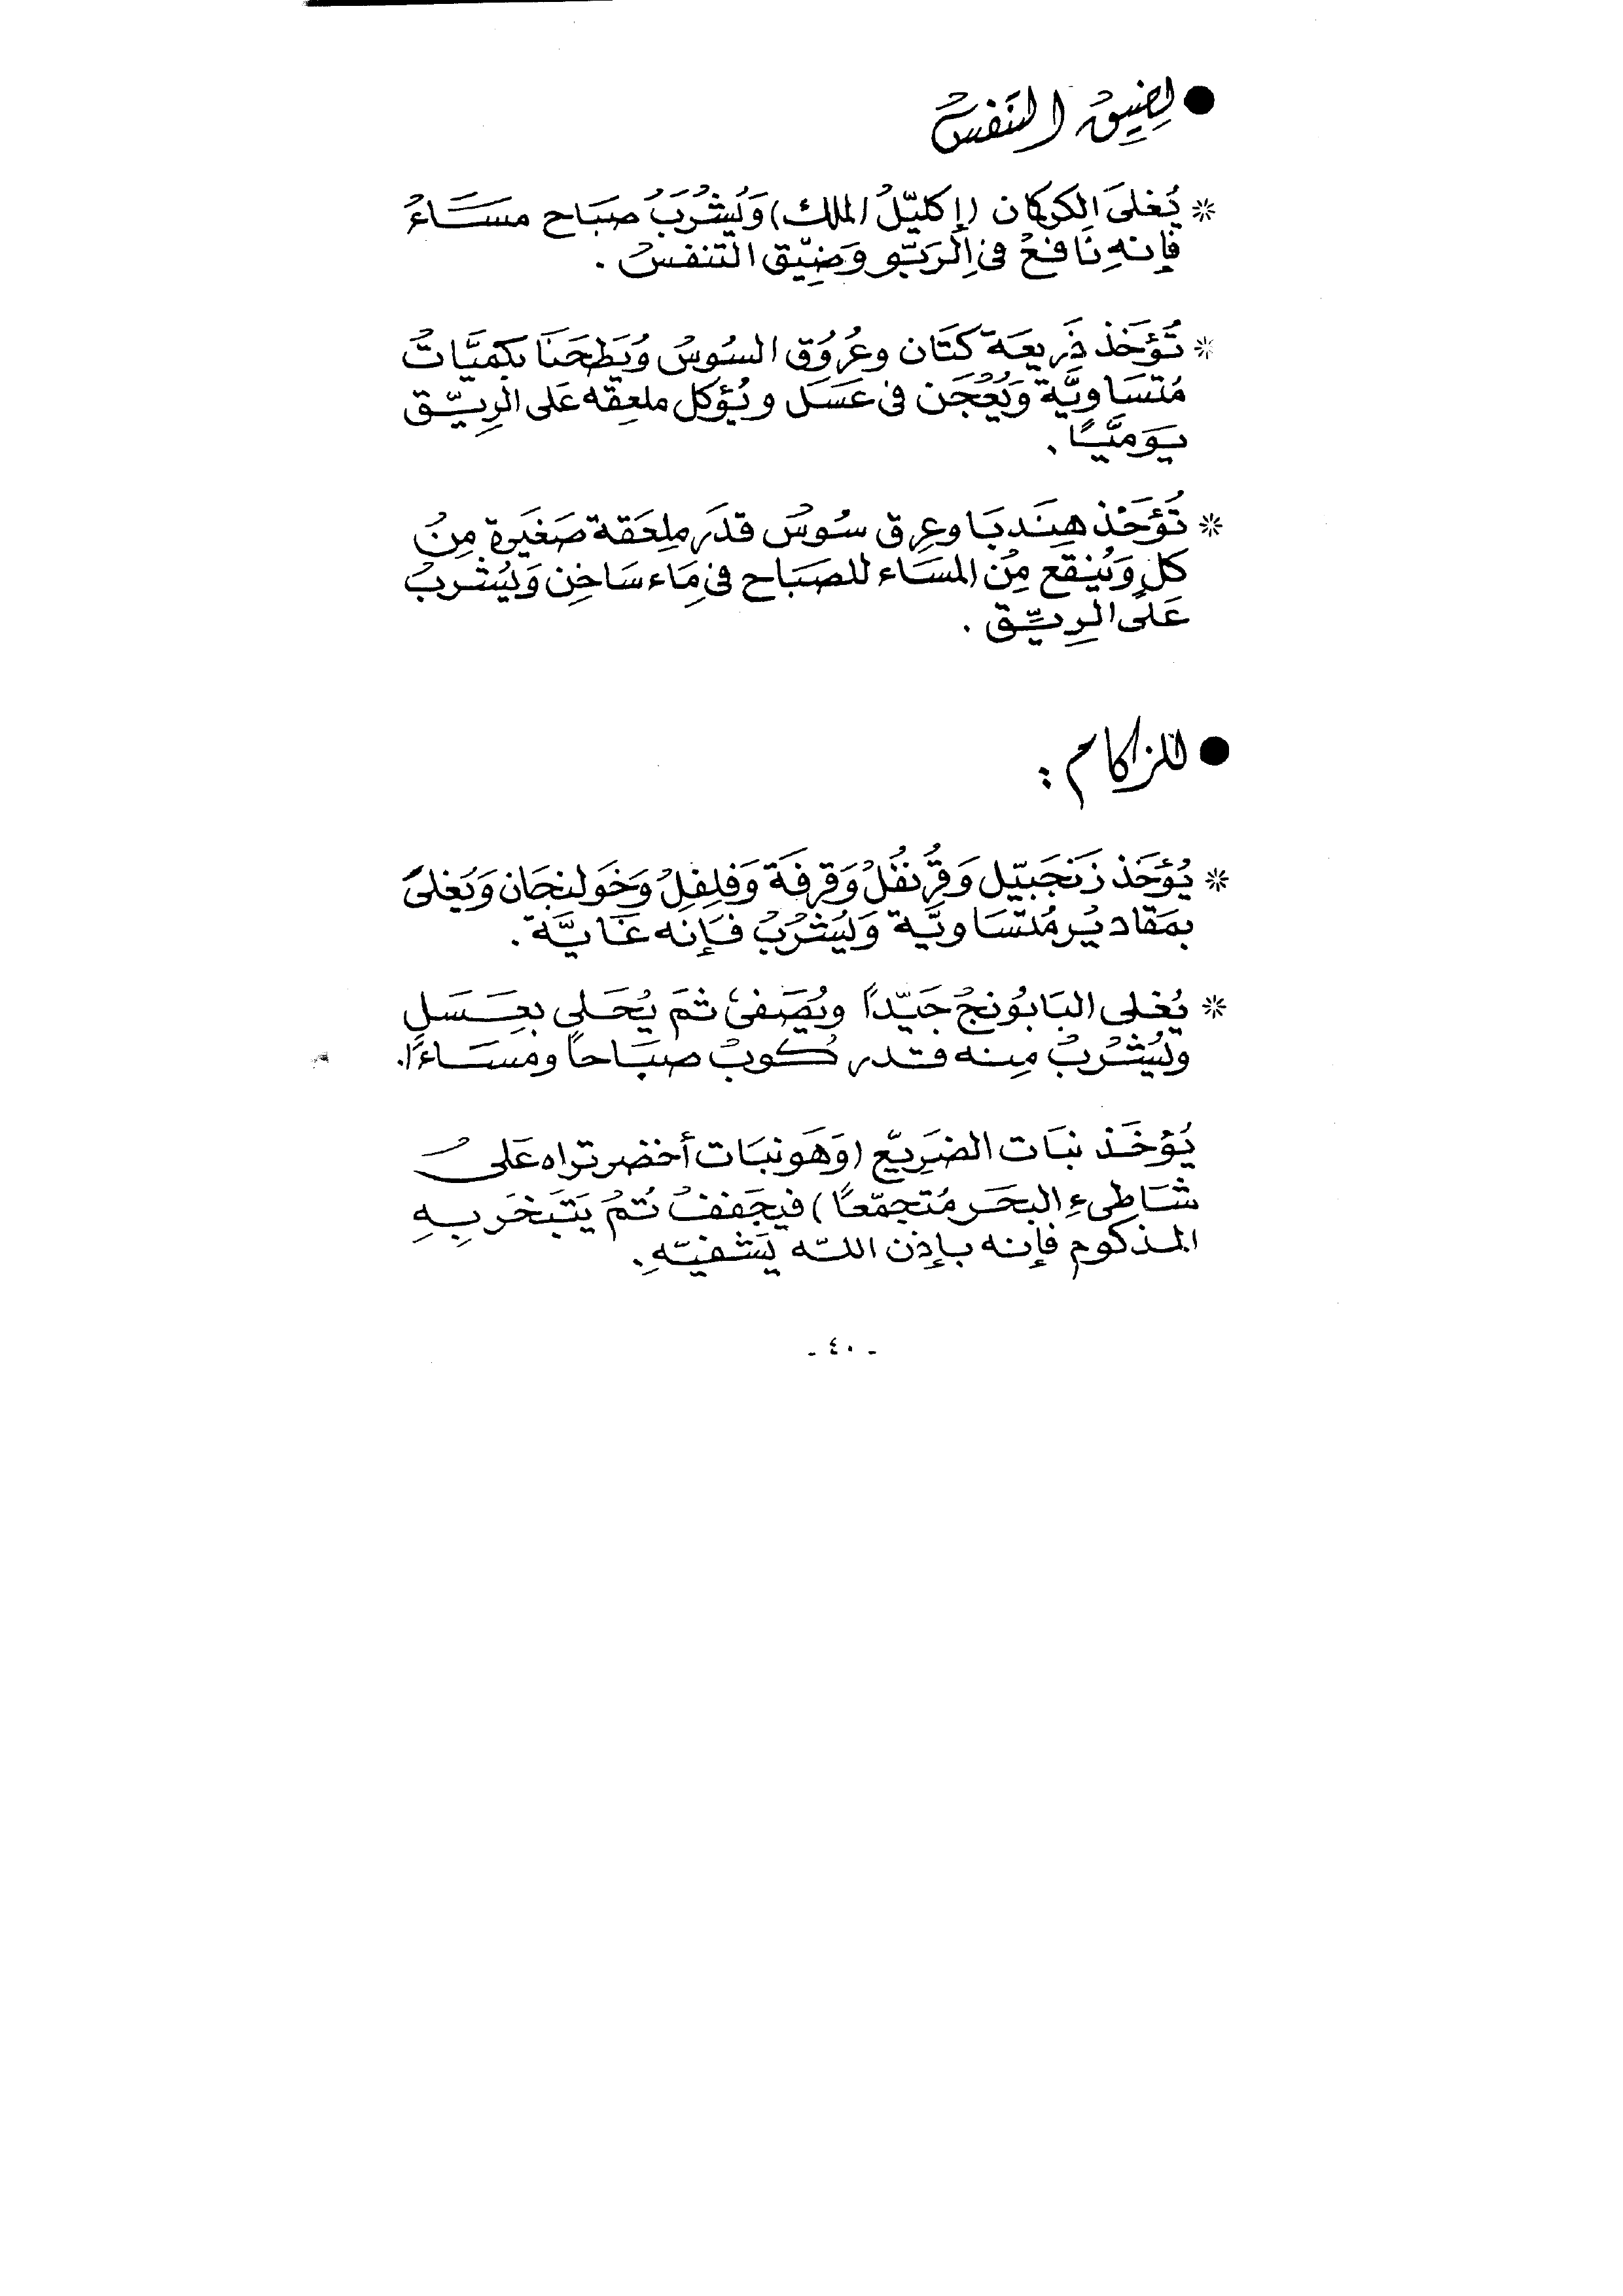 ● لِضِيقُ النَّفَسُ
* يُغلىَ الكركمان (إكليّلُ الملك) وَيُشْرُبَ صَبَاح مسَسَاءُ
فإنهِ نَافعُ فى الرَبّو وَضِيّق التنفسُ .
* تُؤخَذ ذَريعَة كَتَان وعُرُوُق السُوسُ وُيَطحَنَا بكمَيَّاتُ
مُتسَاويَّة وَيُعُجَن فى عَسَل ويُؤكل ملعِقه عَلى الرِيّق
يَومَّيًا .
* تُؤخَذ هِنَدبَا وعِرق سُوسُ قدَر مِلعَقة صَغَيَرة مِنُ
كل وَيُنِقَع مِنُ المسَاء للصَبَاح فى مَاء سَاخِن وَيُشربُ
عَلَى الرِيِّق .
● للزكام :
* يُؤخَذ زَنجَبيّل وَقرُنفُلُ وَقرفَة وَفلِفِلُ وَخَولنجَان وَيَغلىَ
بمَقاديُر مُتسَاويَّة وَليُشرُبُ فَإنه غَايَّة .
* يُغلى البَابوُنجُ جَيّداً ويُصَفىَ ثمَ يُحَلى بعَسَلِ
وليُشْرُبُ مِنه قدر كُوبُ صبَاحاً ومسَاءًا.
يُؤخَذ نبَات الضَرِيّع (وَهَو نبَات أخضر تراه عَلىُ
شَاطِىءِ البحَر مُتجمّعًا) فيجَففُ ثُمُ يَتَبخَر بِهِ
المذكوم فإنه بإذن اللّه يَشفيّهِ.
- ٤٠ -